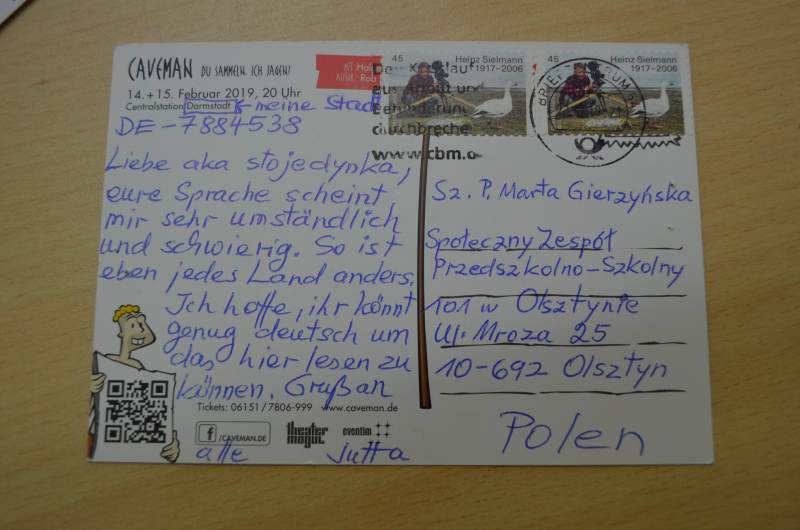 CAVEMAN DU SAMMELN. ICH JAGEN!
14. + 15. Februar 2019, 20 Uhr
Centralstation Darmstadt
meine Stadt
DE-7884538
Liebe aka stojedynka,
eure Sprache scheint
mir sehr umständlich
und schwierig. So ist
eben jedes Land anders.
Ich hoffe, ihr könnt
genug deutsch um
das hier lesen zu
können. Gruß an
alle Jutta
Tickets: 06151/7806-999 www.caveman.de
f /CAVEMAN.DE
theater mogul
eventim
MIT
AUTOR: Rob
45 Heinz Sielmann
1917-2006
45 Heinz Sielmann
1917-2006
durchbreche
www.cbm.
BRIEF
Sz. P. Marta Gierzyńska
Społeczny Zespół
Przedszkolno-Szkolny
101 w Olsztynie
Ul. Mroza 25
10-692 Olsztyn
Polen